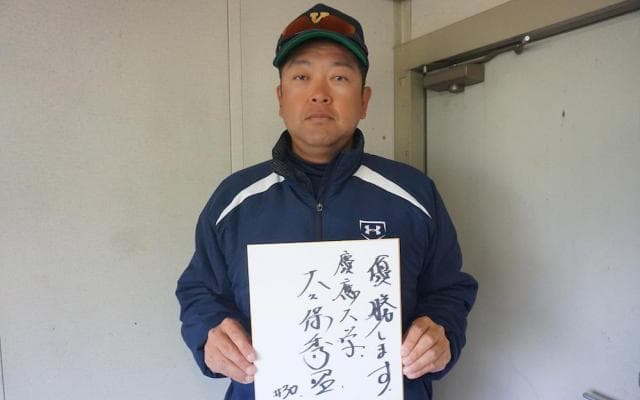 V
優勝します
慶應大学
大久保秀昭
#30